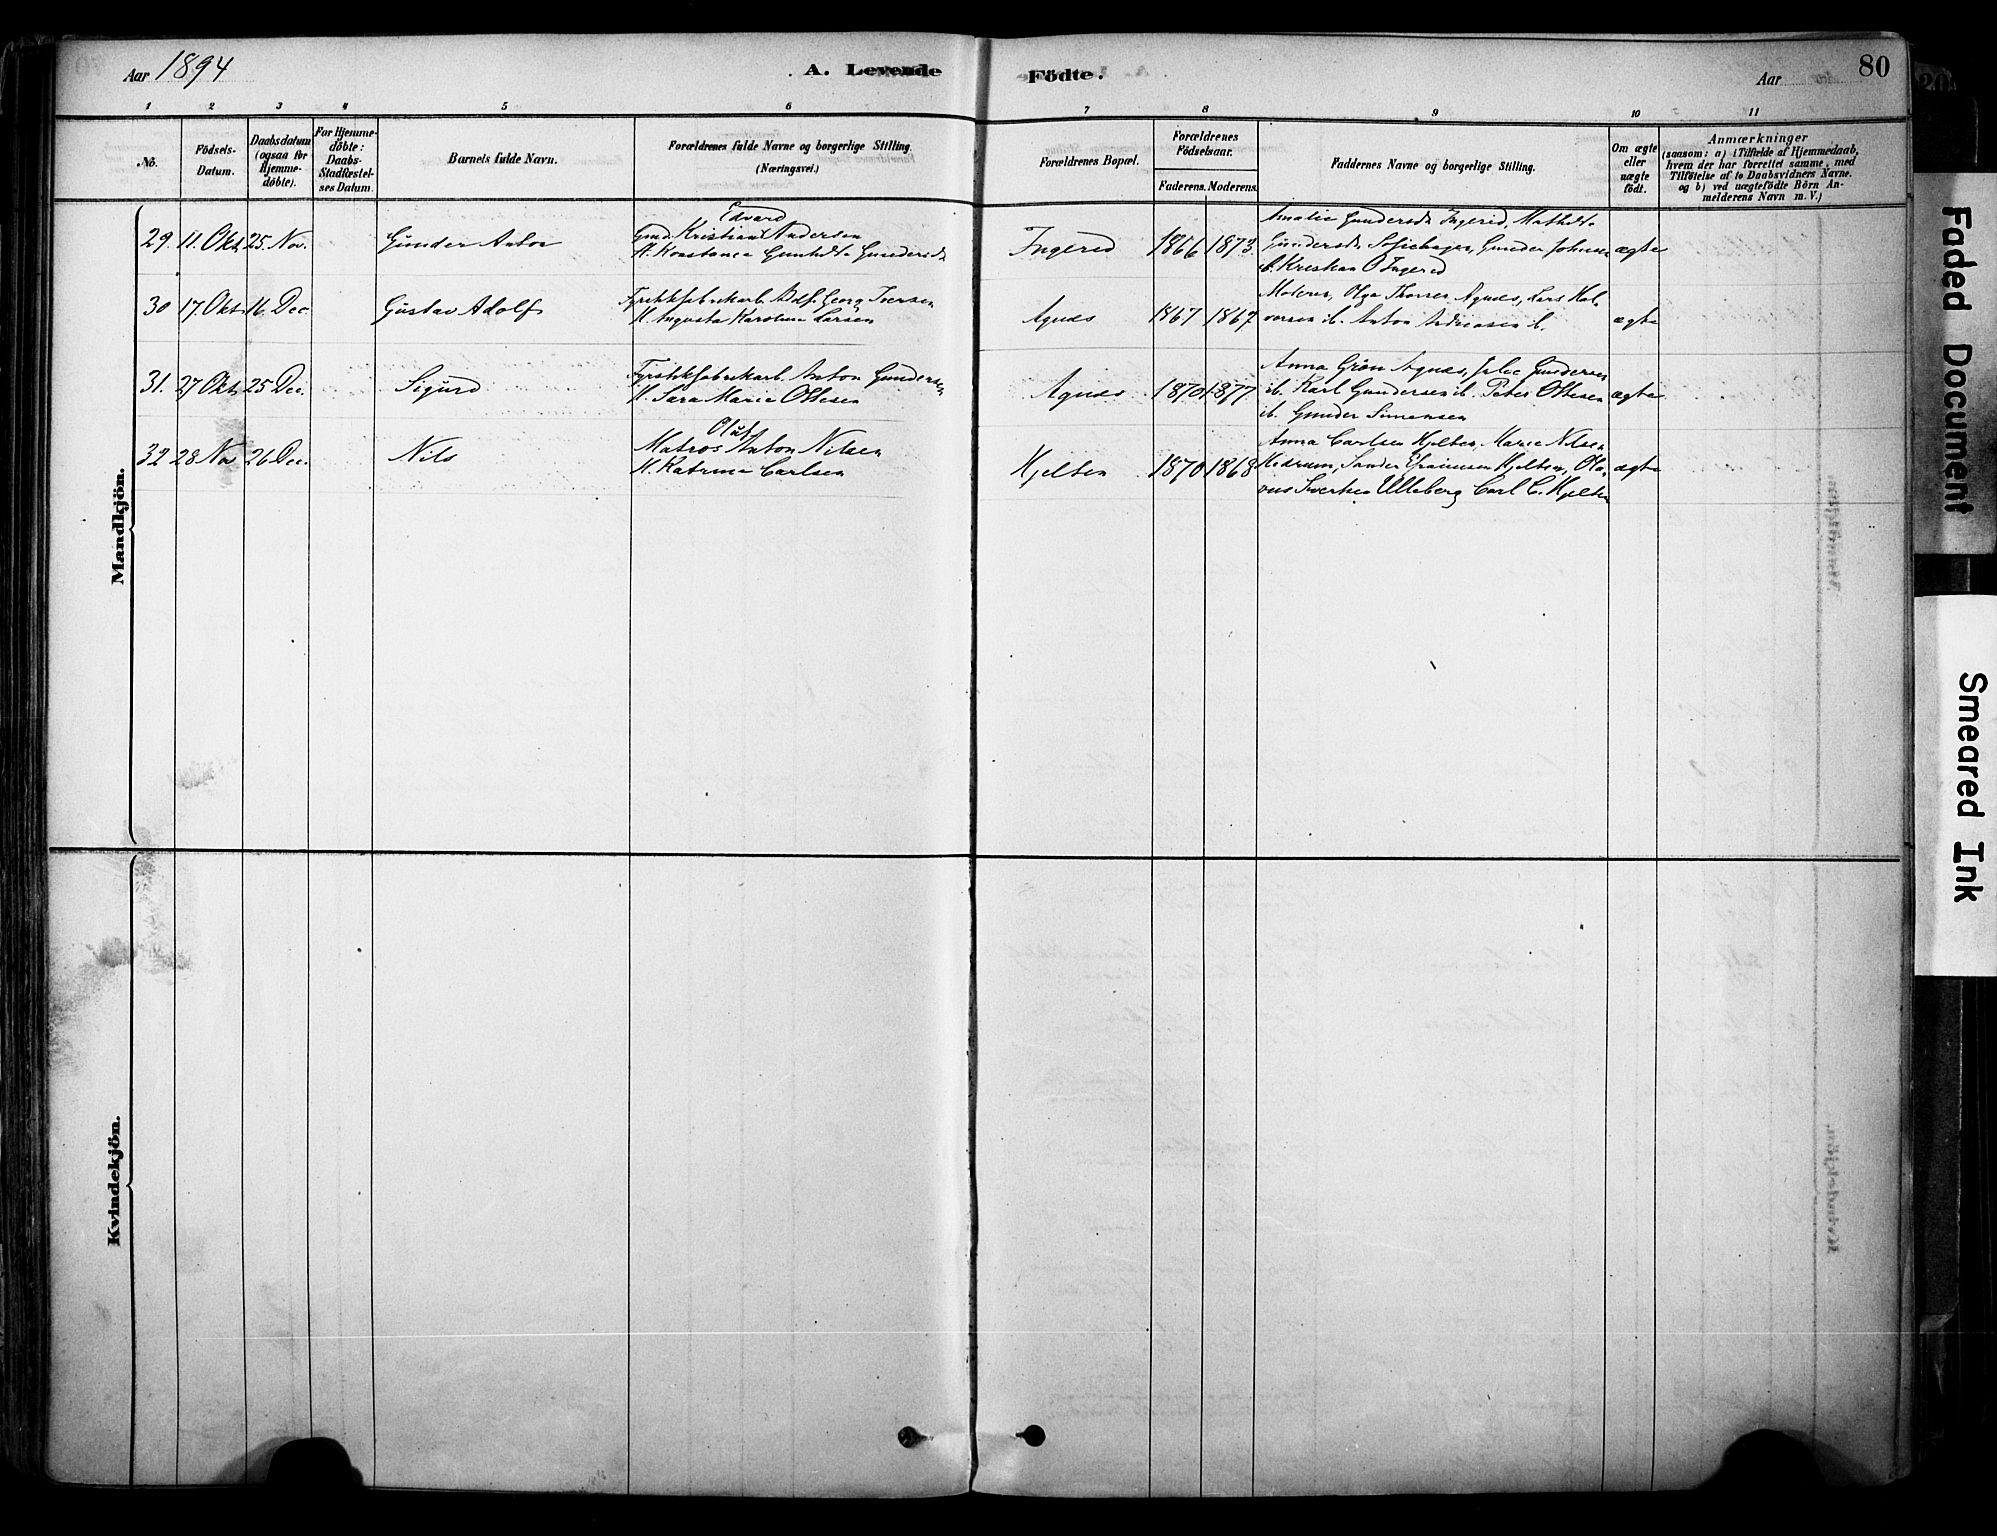 Aar 1894
A. Levende Födte.
Aar
80
1 2 3 4 5 6 7 8 9 10 11
No.
Födsels-
Datum.
Daabsdatum
(ogsaa for
Hjemme-
döbte).
For Hjemme-
döbte:
Daabs-
Stadfæstel-
ses Datum.
Barnets fulde Navn.
Forældrenes fulde Navne og borgerlige Stilling.
(Næringsvei.)
Forældrenes Bopæl.
Forældrenes
Födselsaar.
Faderens. Moderens.
Faddernes Navne og borgerlige Stilling.
Om ægte
eller
uægte
födt.
Anmærkninger
(saasom: a) i Tilfælde af Hjemmedaab,
hvem der har forrettet samme, med
Tilföielse af to Daabsvidners Navne.
og b) ved uægtefödte Börn An-
melderens Navn m. V.)
Mandkjön.
29. 11. Okt. 25. Nov.
Gunder Anton
Edvard
Gmd. Kristian Andersen
H. Konstance Gunhilde Gundersd.
Ingerød
1866 1873.
Amalie Gundersd. Ingerød, Mathilde
Gundersd. Sofiehagen, Gunder Johnsen
ib. Kristian O Ingerød
ægte
30 17. Okt. 16. Dec.
Gustav Adolf
Fyrstikfabrikarb. Adf. Georg Iversen
H. Augusta Karoline Larsen
Agnæs
1867 1867
Moderen, Olga Thorsen Agnæs, Lars Hal-
vorsen ib. Anton Andreasen ib.
ægte
31. 27 Okt. 25 Dec.
Sigurd
Fyrstikfabrikarb. Anton Gundersen
H. Sara Marie Ottesen
Agnæs
1870 1877
Anna Grøn Agnæs, Julie Gundersen
ib. Karl Gundersen ib. Peter Ottesen
ib. Gunder Simensen
ægte
32 28 Nov 26 Dec.
Nils
Oluf
Matros Anton Nilsen
H. Katrine Carlsen
Hjelten
1870 1868
Anna Carlsen Hjelten, Marie Nilsen
Sander Efraimsen Hjelten, Ola-
vus Iversen Ulleberg Carl C. Hjelten
ægte
Kvindekjön.
Faded Document
Smeared Ink